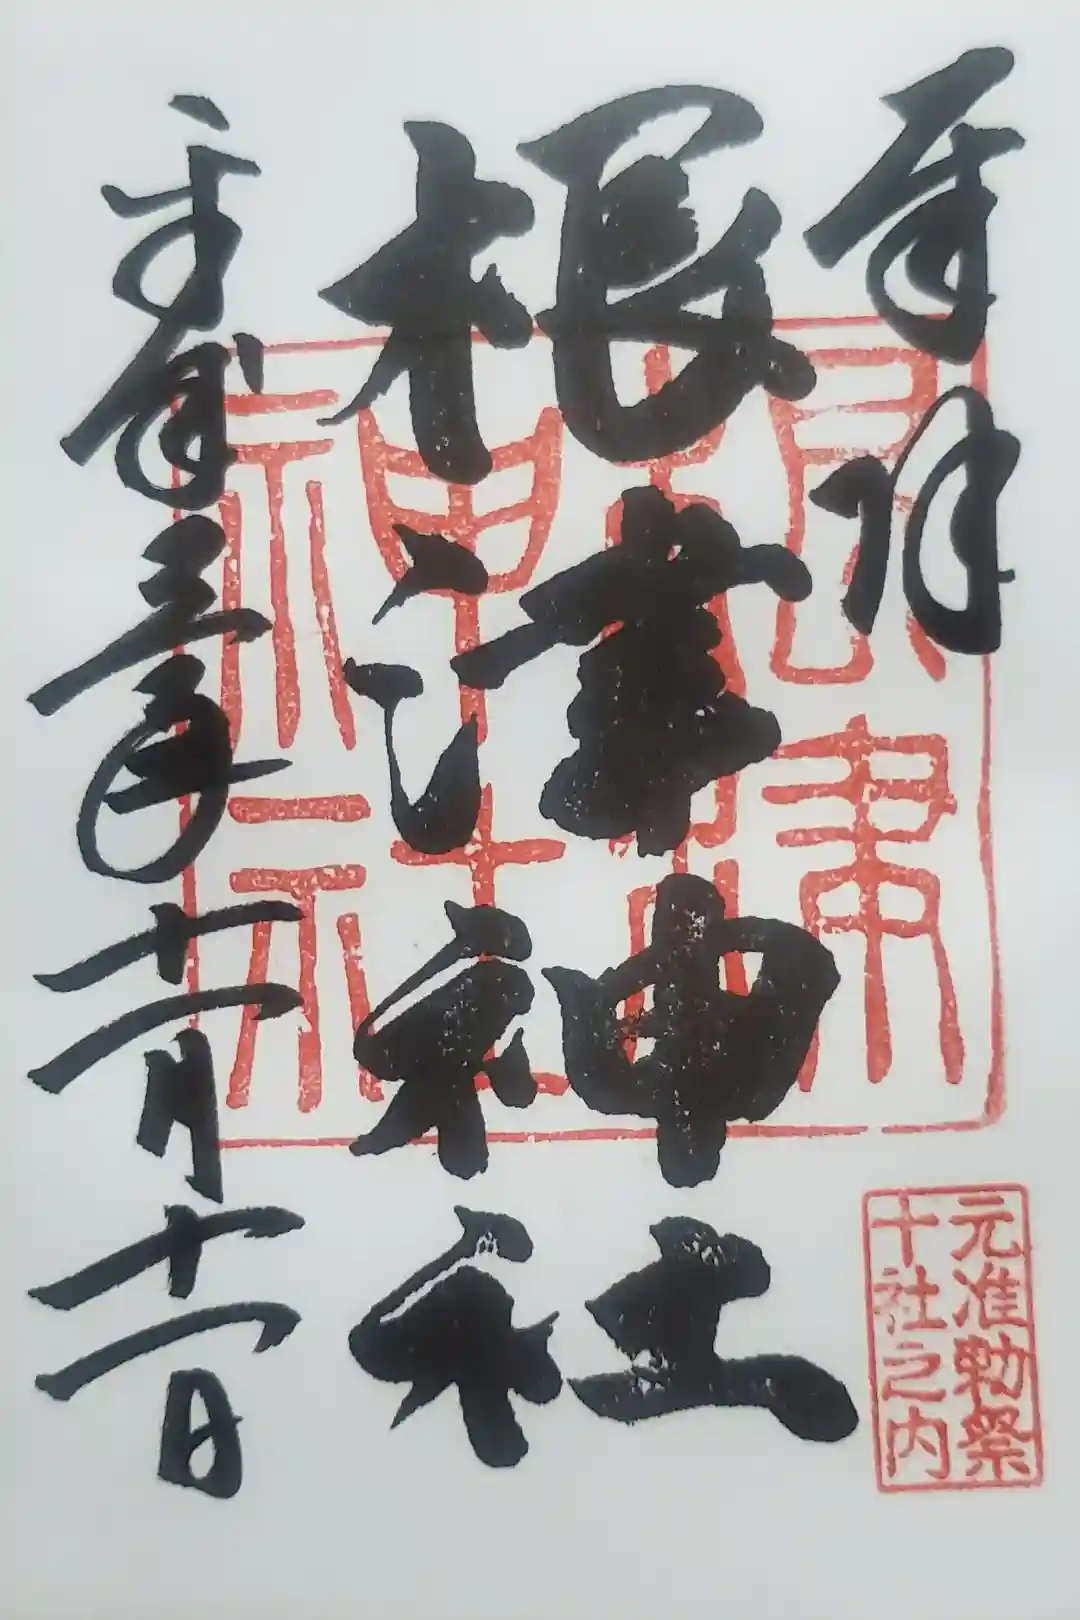 奉拝
根津神社
令和三年十一月十一日
根津神社
元准勅祭
十社之内